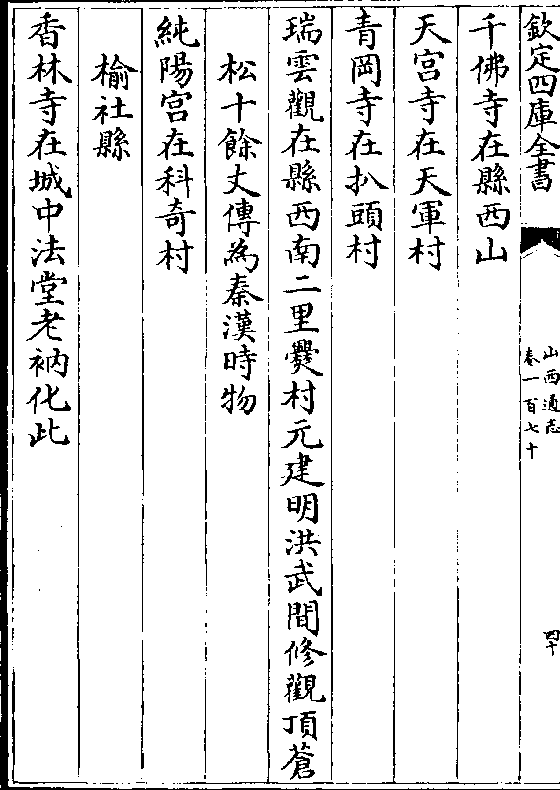 欽定四庫全書
山西通志
卷一百七十
四十
千佛寺在縣西山
天宮寺在天軍村
青岡寺在扒頭村
瑞雲觀在縣西南二里㸑村元建明洪武間修觀頂蒼
松十餘丈傳為秦漢時物
純陽宮在科奇村
榆社縣
香林寺在城中法堂老衲化此